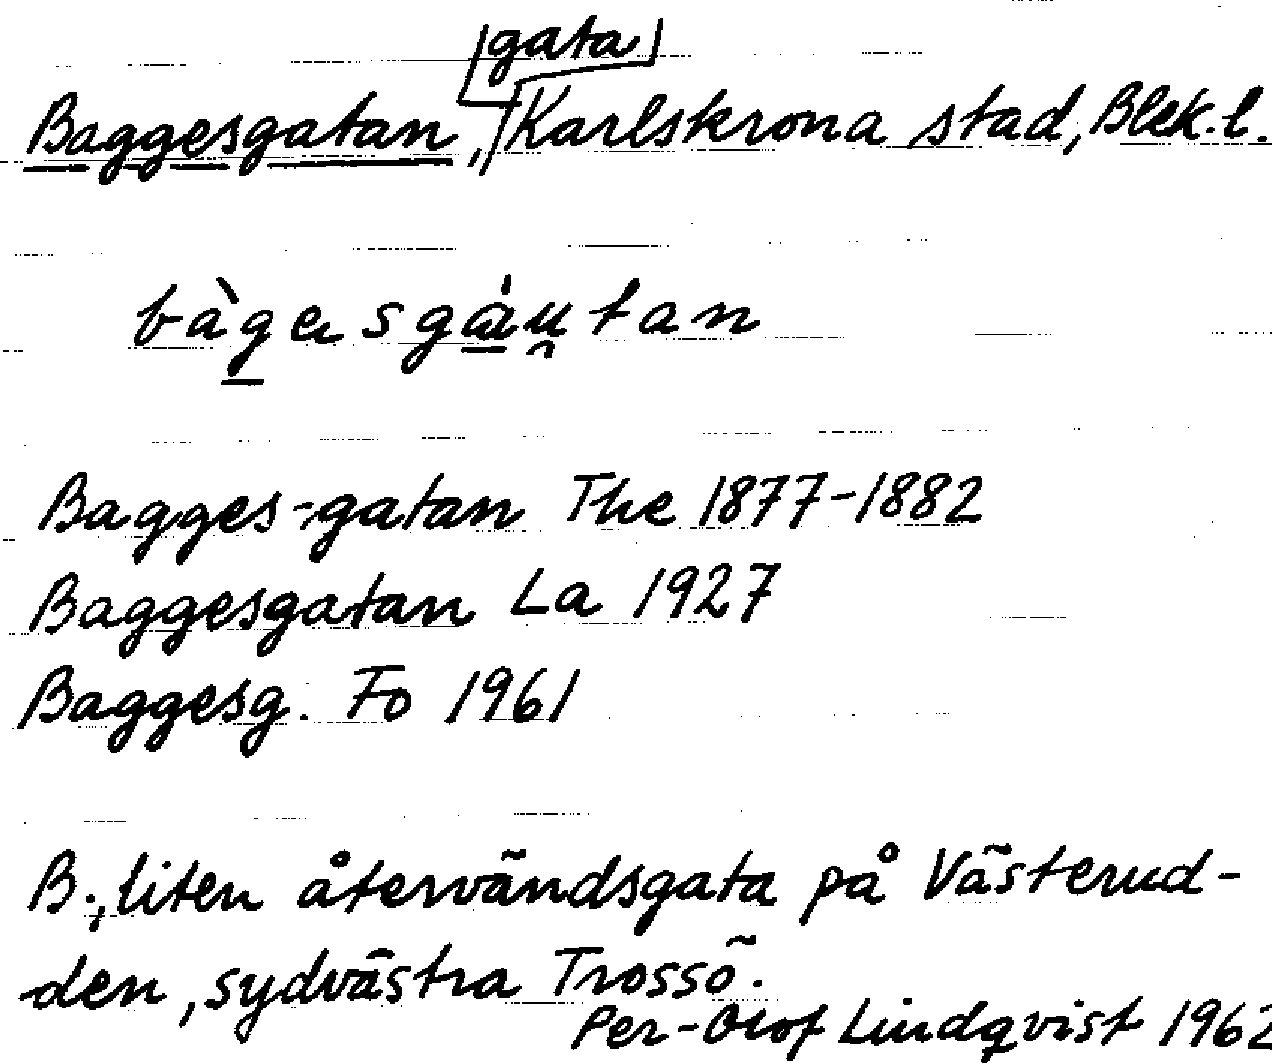 gata
Baggesgatan, Karlskrona stad, Blek.l.
bàgesgáu̯tan
Bagges-gatan The 1877-1882
Baggesgatan La 1927
Baggesg. Fo 1961
B., liten återvändsgata på Västerud-
den, sydvästra Trossö.
Per-Olof Lindqvist 1962